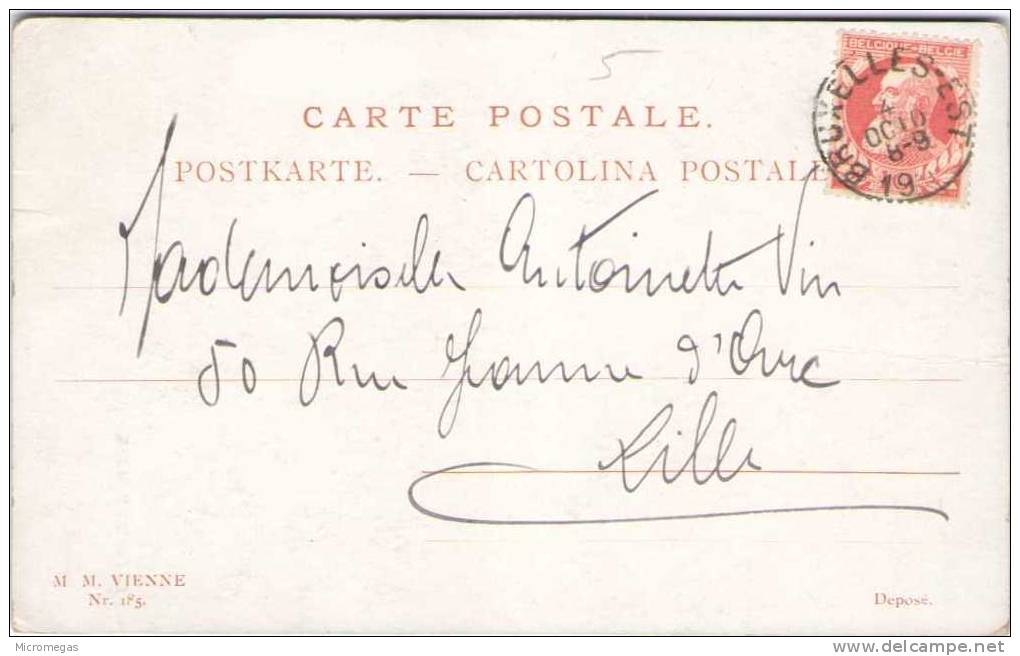 5
BELGIQUE-BELGIE
BRUXELLES-EST
4
OCTO
8-9
19
CARTE POSTALE.
POSTKARTE. — CARTOLINA POSTALE
Mademoiselle Antoinette Vin
50 Rue Jeanne d'Arc
Lille
M. M. VIENNE
Nr. 185.
Deposé.
Micromegas
www.delcampe.net